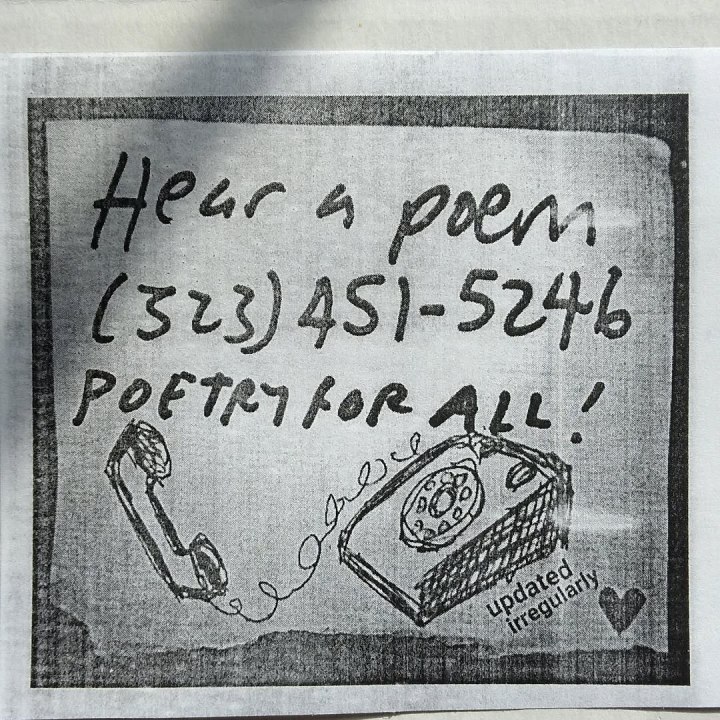 Hear a poem
(323) 451-5246
POETRY FOR ALL!
updated
irregularly